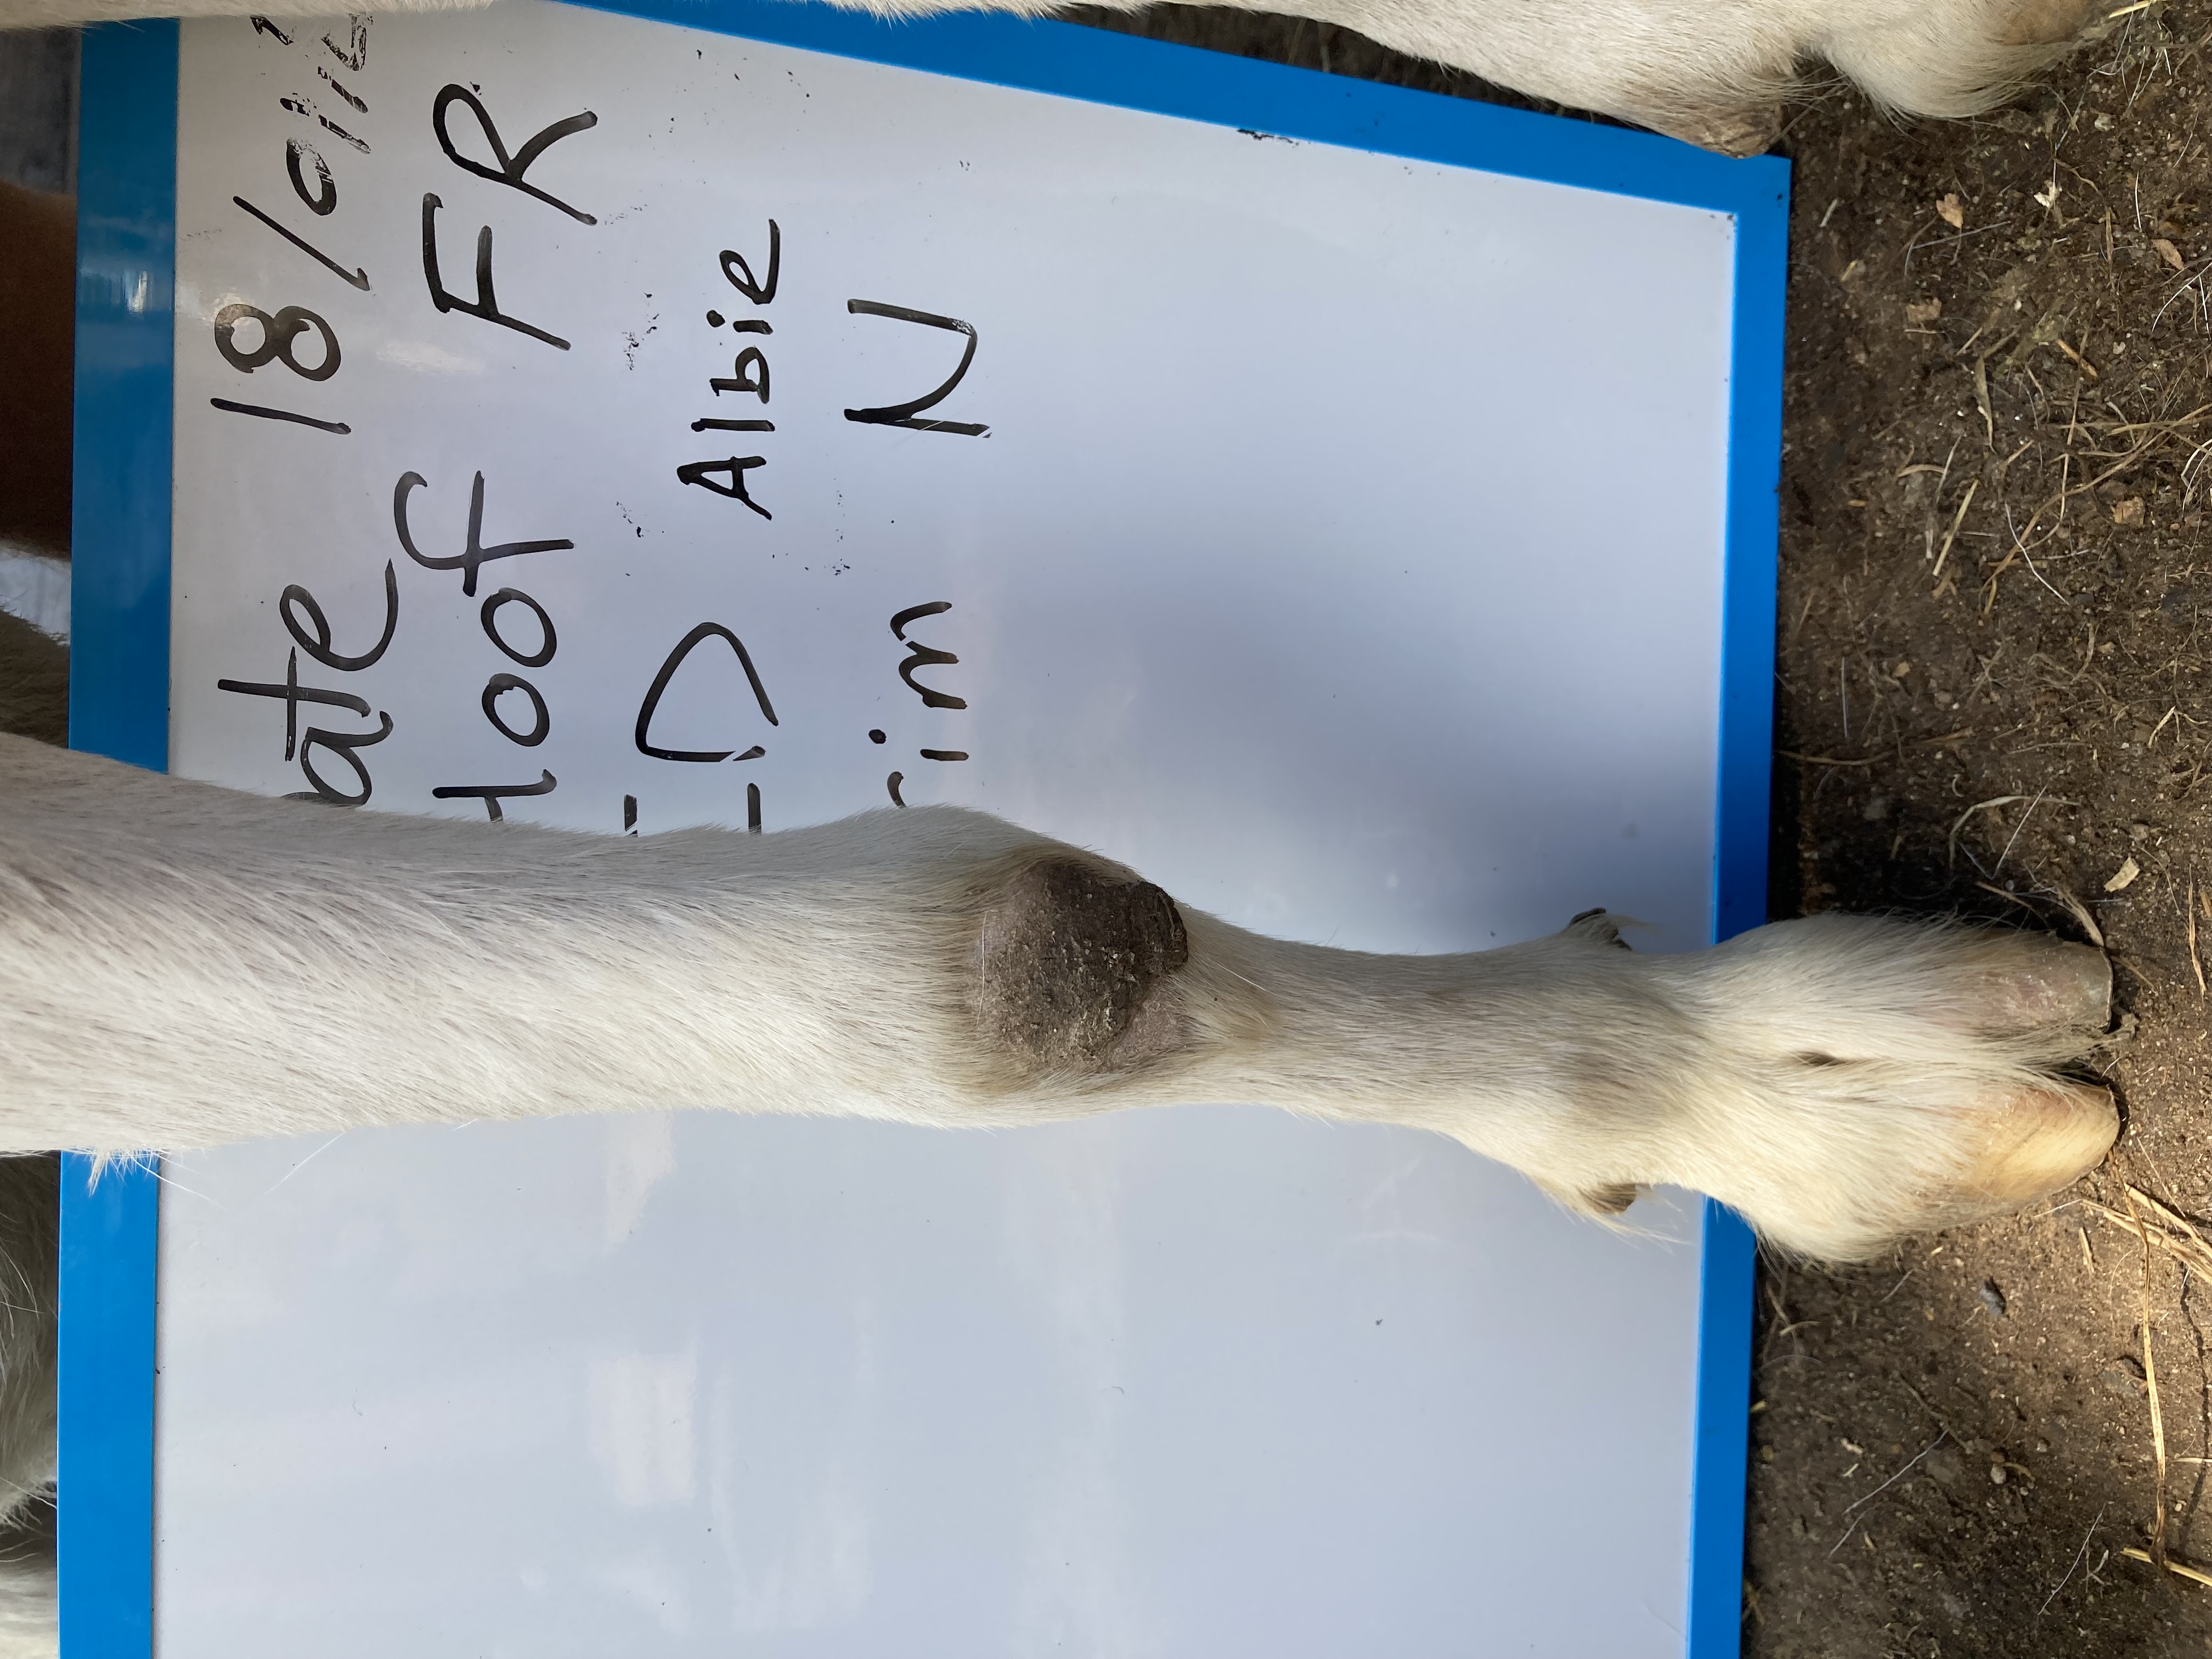 ate 18/01/2
Hoof FR
ED Albie
rim N